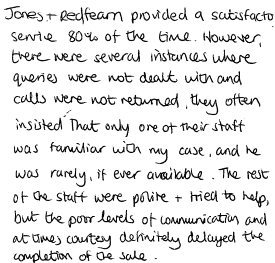 Jones + Redfearn provided a satisfacto
service 80% of the time. However,
there were several instances where
queries were not dealt with and
calls were not returned, they often
insisted That only one of their staff
was familiar with my case, and he
was rarely, if ever available. The rest
of the staff were polite + tried to help,
but the poor levels of communication and
at times courtesy definitely delayed the
completion of the sale.